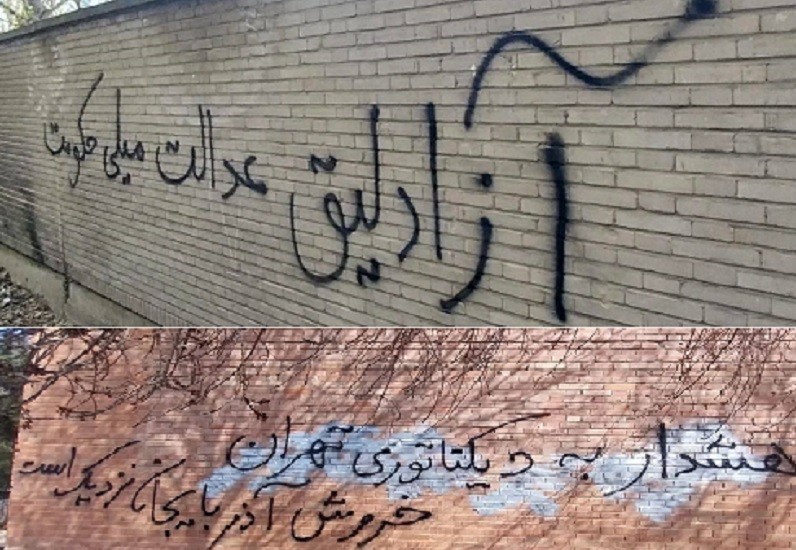 آزادلیق عدالت میللی حکومت
هشدار به دیکتاتوری تهران
خروش آذربایجان نزدیک است